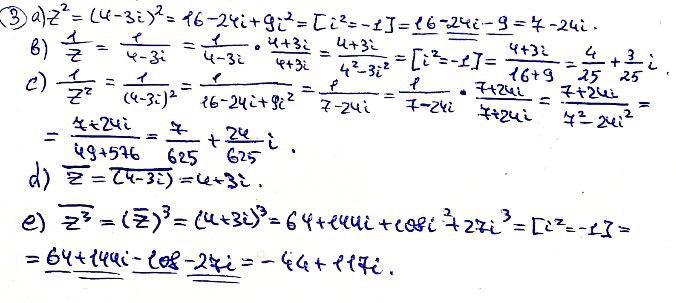 ③ a) z² = (4-3i)² = 16-24i+9i² = [i²=-1] = 16-24i-9 = 7-24i.
b) 1/z = 1/(4-3i) = 1/(4-3i) · (4+3i)/(4+3i) = (4+3i)/(4²-3i²) = [i²=-1] = (4+3i)/(16+9) = 4/25 + 3/25 i.
c) 1/z² = 1/(4-3i)² = 1/(16-24i+9i²) = 1/(7-24i) = 1/(7-24i) · (7+24i)/(7+24i) = (7+24i)/(7²-24i²) =
= (7+24i)/(49+576) = 7/625 + 24/625 i.
d) z̅ = \overline{(4-3i)} = 4+3i.
e) \overline{z³} = (z̅)³ = (4+3i)³ = 64+144i+108i²+27i³ = [i²=-1] =
= 64+144i-108-27i = -44+117i.